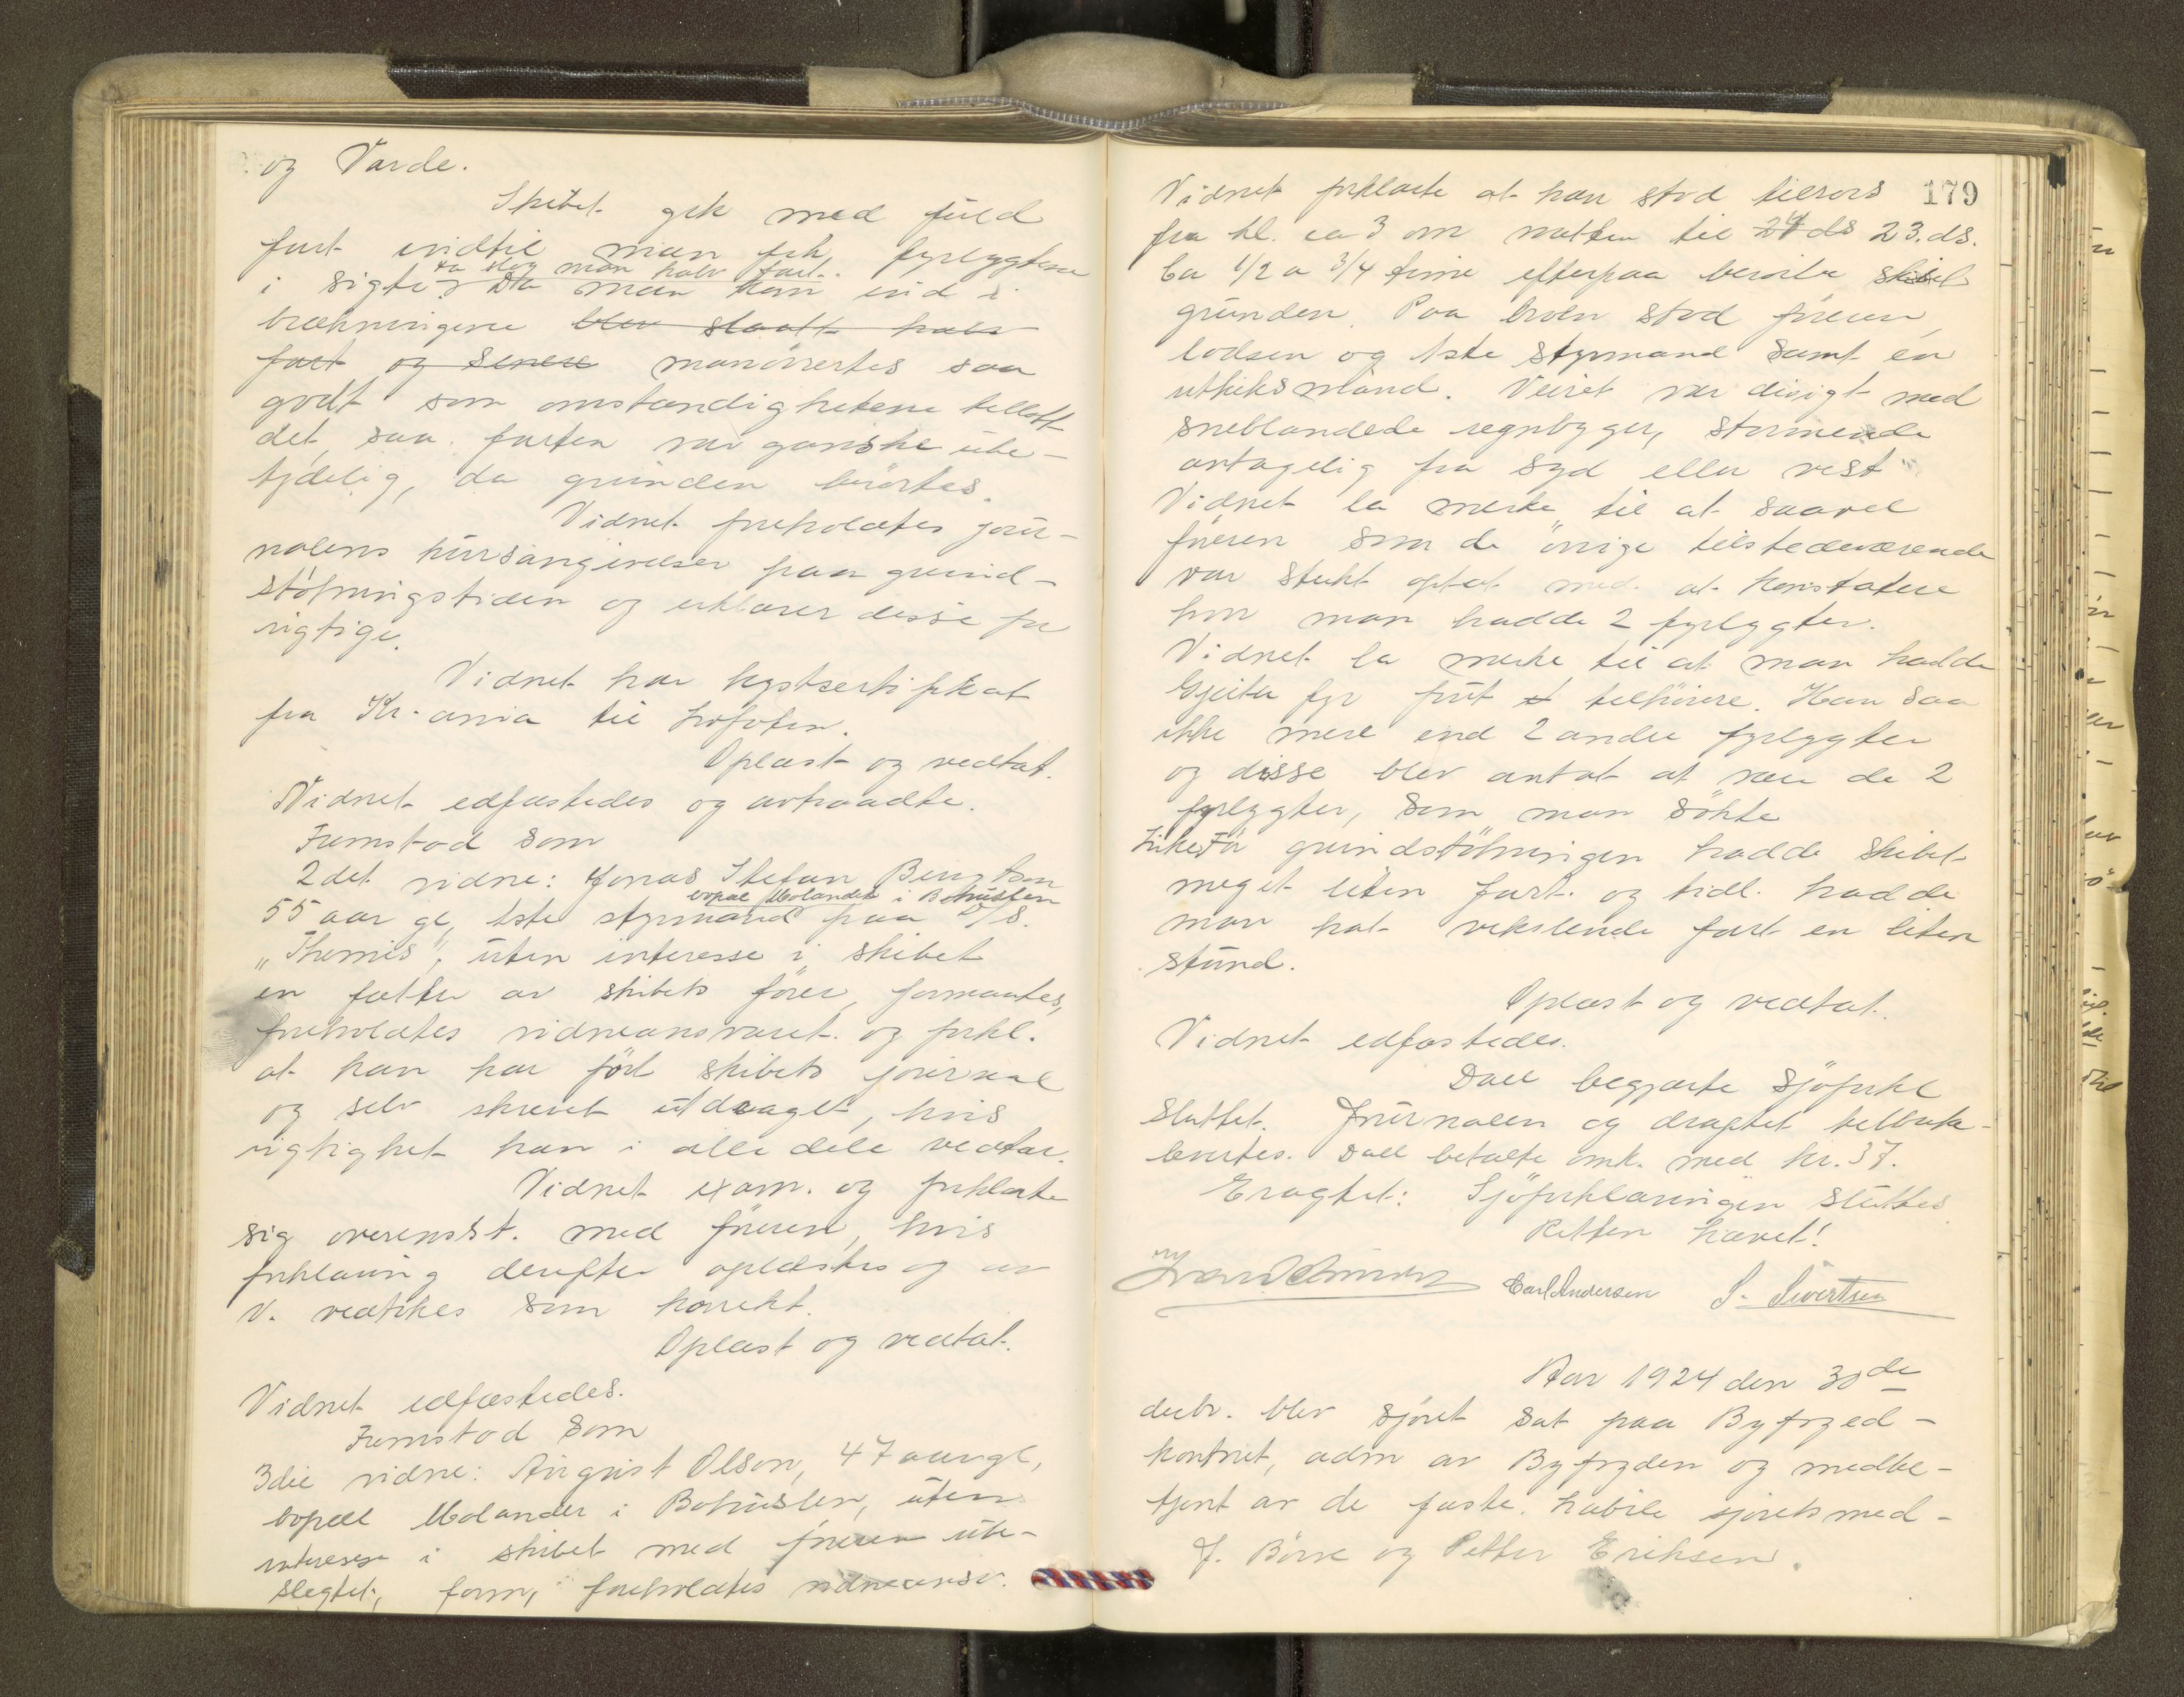 og Varde.
Skibet gik med fuld
fart indtil man fik fyrlygtene
da slog man halv fart.
i sigte. Da man kom ind i
brækningerne blev slaatt halv
fart og senere manövrertes saa
godt som omstændighetene tillott
det, saa farten var ganske ube-
tydelig, da grunden berörtes.
Vidnet foreholdtes jour-
nalens kursangivelser paa grund-
stötningstiden og erklærer disse for
rigtige.
Vidnet har kystsertifikat
fra Kr-ania til Lofoten.
Oplæst og vedtat.
Vidnet edfæstedes og avtraadte.
Fremstod som
2det vidne: Jonas Stefan Bengtson
bopæl Molander i Bohuslen
55 aar gl, 1ste styrmand paa D/S.
"Themis", uten interesse i skibet
en fætter av skibets förer, formantes,
foreholdtes vidneansvaret og forkl.
at han har fört skibets journal
og selv skrevet utdraget, hvis
rigtighet han i alle dele vedtar.
Vidnet exam. og forklarte
sig overensst. med föreren, hvis
forklaring derefter oplæstes og av
V. vedtokes som korrekt.
Oplæst og vedtat.
Vidnet edfæstedes.
Fremstod som
3die vidne: August Olson, 47 aar gl,
bopæl Molander i Bohuslen, uten
interesse i skibet med föreren ube-
slegtet, form, foreholdtes vidneansv.
179
Vidnet forklarte at han stod tilrors
fra kl. ca 3 om natten til 24 ds 23. ds.
Ca 1/2 a 3/4 time efterpaa berörte skibet
grunden. Paa broen stod föreren,
lodsen og 1ste styrmand samt en
utkiksmand. Veiret var disigt med
sneblandede regnbyger, stormende
antagelig fra syd eller vest
Vidnet la merke til at saavel
föreren som de övrige tilstedeværende
var sterkt optat med at konstatere
hvor man hadde 2 fyrlygter.
Vidnet la merke til at man hadde
Gjeita fyr forut tilhöire. Han saa
ikke mere end 2 andre fyrlygter
og disse blev antat at være de 2
fyrlygter, som man sökte
För grundstötningen hadde skibet
meget liten fart og tidl. hadde
man hat vekslende fart en liten
stund.
Oplæst og vedtat.
Vidnet edfæstedes.
Dall begjærte sjöforkl
sluttet. Journalen og dragtet tilbake-
levertes. Dall betalte omk. med kr. 37.
Eragtet: Sjöforklaringen sluttes
Retten hævet!
Carl Andersen S. Sivertsen
Aar 1924 den 30de
decbr. blev sjöret sat paa Byfoged-
kontoret, adm av Byfogden og medbe-
tjent av de faste, habile sjöretsmed-
J. Börve og Petter Eriksen.